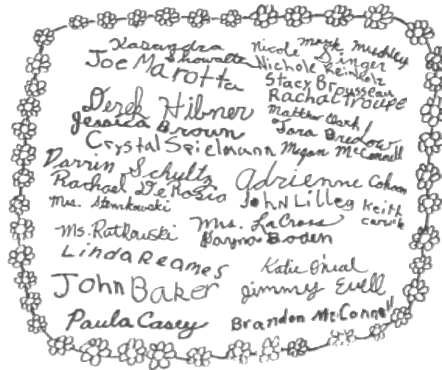 Kasandra Showalter
Nicole Singer
Mark Mushley
Joe Marotta
Nichole Reinholz
Stacy Brousseau
Rachal Troupe
Derek Hibner
Matthew Clark
Jessica Brown
Tara Bredow
Crystal Spielmann
Megan McConnell
Darrin Schultz
Adrienne Cohan
Rachael DeRosia
John Lilley
Keith
Mrs. Stemkowski
Ms. Ratkowski
Mrs. LaCross
Dayna Boden
Linda Reames
Katie O'neal
John Baker
Jimmy Evell
Paula Casey
Brandon McConnell